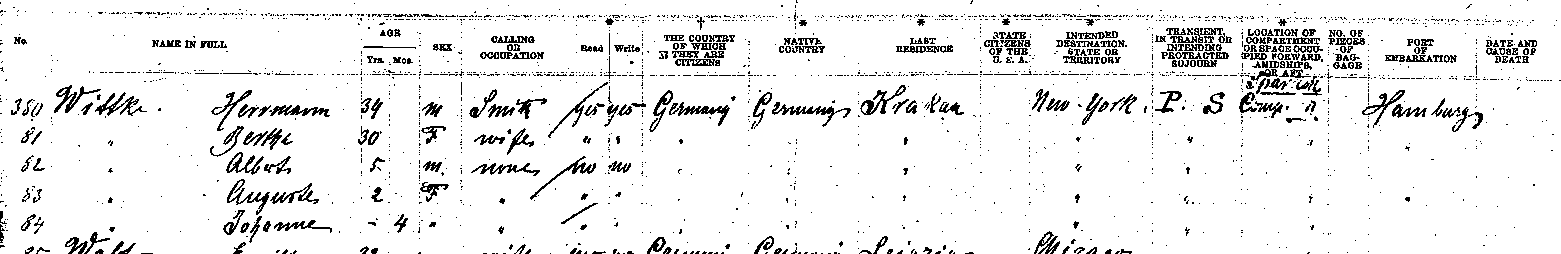 No. NAME IN FULL AGE Yrs. Mos. SEX CALLING OR OCCUPATION * Read Write † THE COUNTRY OF WHICH THEY ARE CITIZENS * NATIVE COUNTRY * LAST RESIDENCE * STATE CITIZENS OF THE U. S. A. * INTENDED DESTINATION, STATE OR TERRITORY TRANSIENT, IN TRANSIT OR INTENDING PROTRACTED SOJOURN * LOCATION OF COMPARTMENT OR SPACE OCCUPIED FORWARD, AMIDSHIPS, OR AFT NO. OF PIECES OF BAGGAGE PORT OF EMBARKATION DATE AND CAUSE OF DEATH
380 Wittke. Herrmann 34 m Smith yes yes Germany Germany Krakau New-York. P. S Comp. Hamburg
81 " Bertha 30 F wife " " " "
82 " Albert 5 m. none no no " "
83 " Auguste 2 F " " " " "
84 " Johanne - 4 " " " " "
Germany Germany Leipzig Chicago